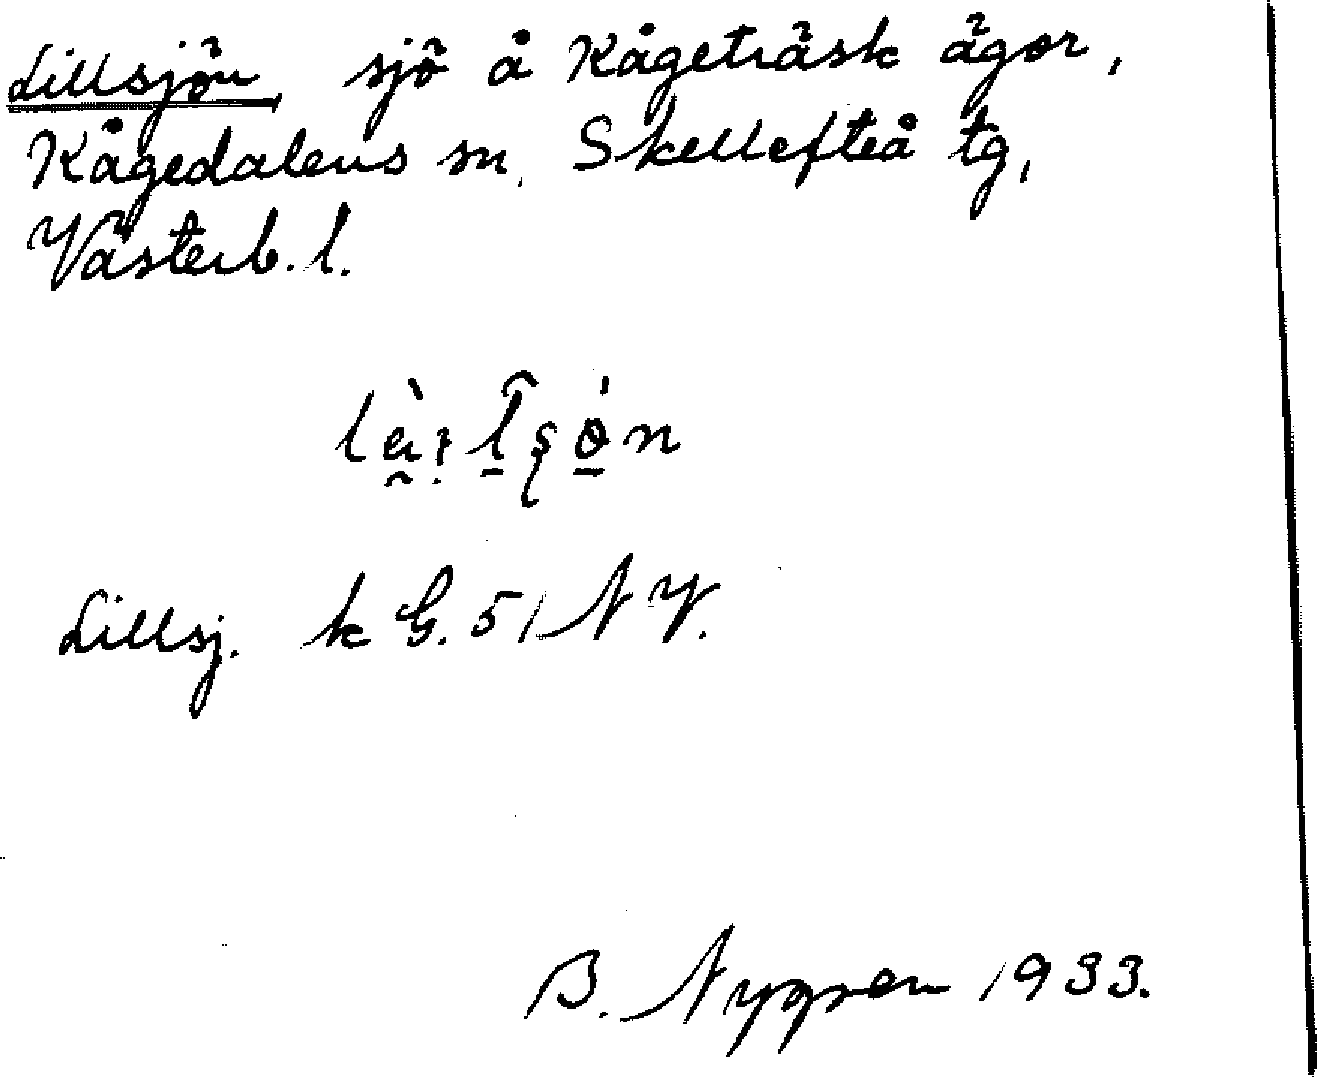 Lillsjön, sjö å Kågeträsk ägor,
Kågedalens sn, Skellefteå tg,
Västerb. l.
Lillsj. k G. 51 NV.
B. Nygren 1933.